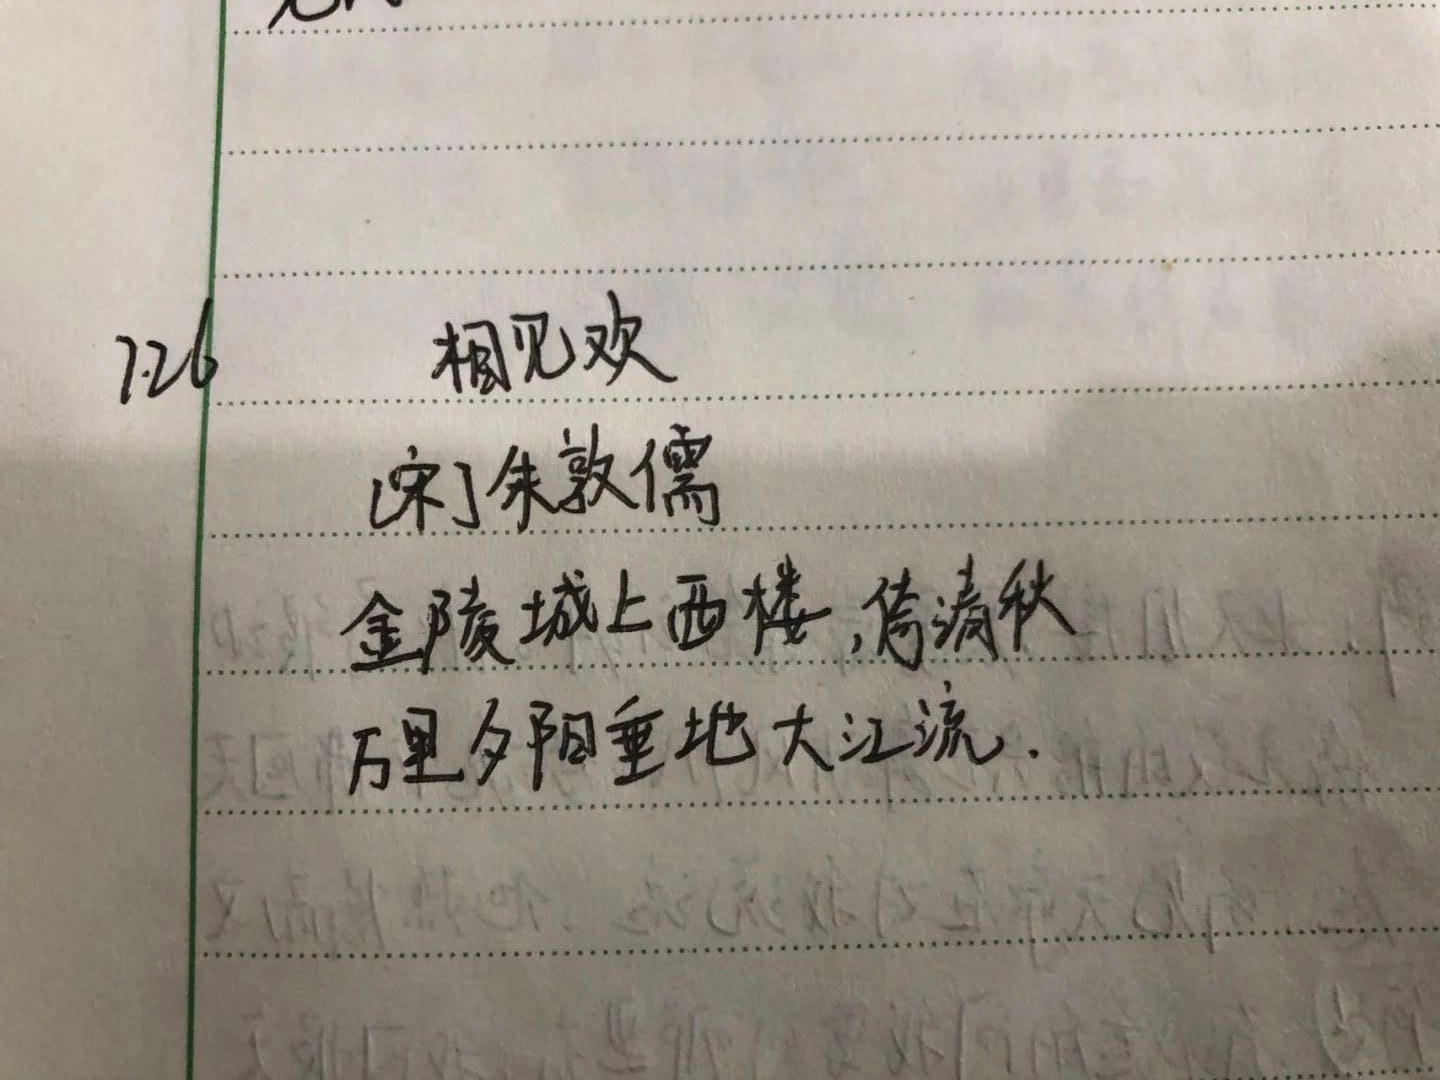 7.26 相见欢
[宋]朱敦儒
金陵城上西楼,倚清秋
万里夕阳垂地大江流.